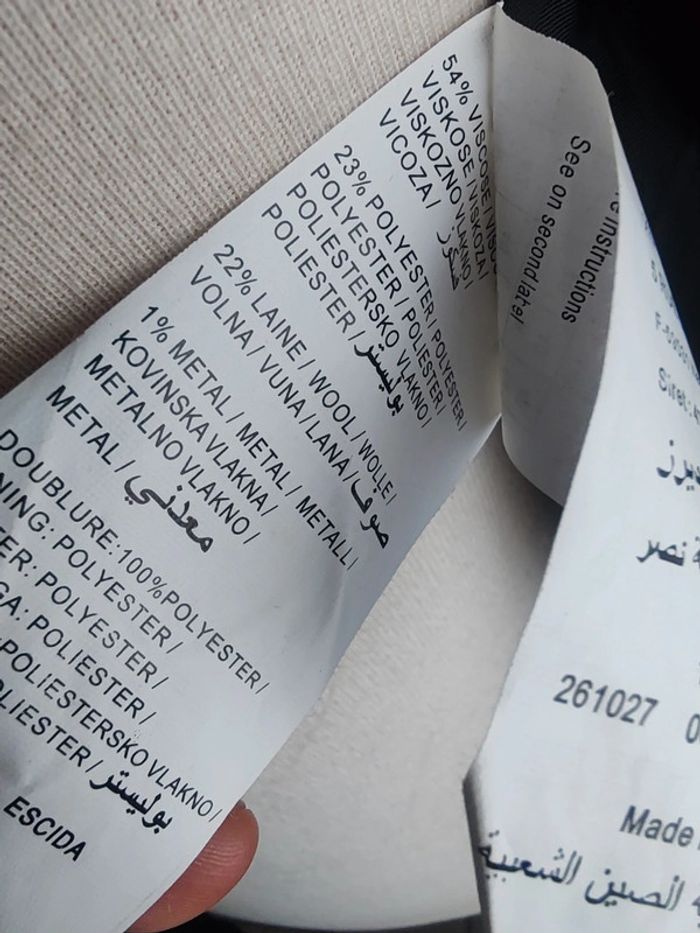 54% VISCOSE / VISCO
VISKOSE / VISKOZA /
VISKOZNO VLAKNO /
VICOZA / فسكوز
23% POLYESTER / POLYESTER /
POLYESTER / POLIESTER /
POLIESTERSKO VLAKNO /
POLIESTER / بوليستر
22% LAINE / WOOL / WOLLE /
VOLNA / VUNA / LANA / صوف
1% METAL / METAL / METALL /
KOVINSKA VLAKNA /
METALNO VLAKNO /
METAL / معدني
DOUBLURE:100%POLYESTER /
NING: POLYESTER /
ER: POLYESTER /
GA: POLIESTER /
POLIESTERSKO VLAKNO /
LIESTER / بوليستر
ESCIDA
e instructions
See on second label
Siret:
نصر
261027 0
Made
الصين الشعبية